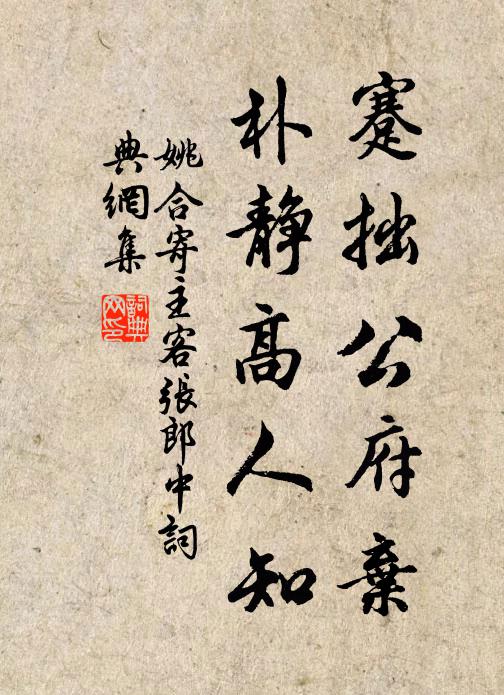 蹇拙公府棄
朴静高人知
姚合寄主客張郎中詞
典網集
詞典
网印